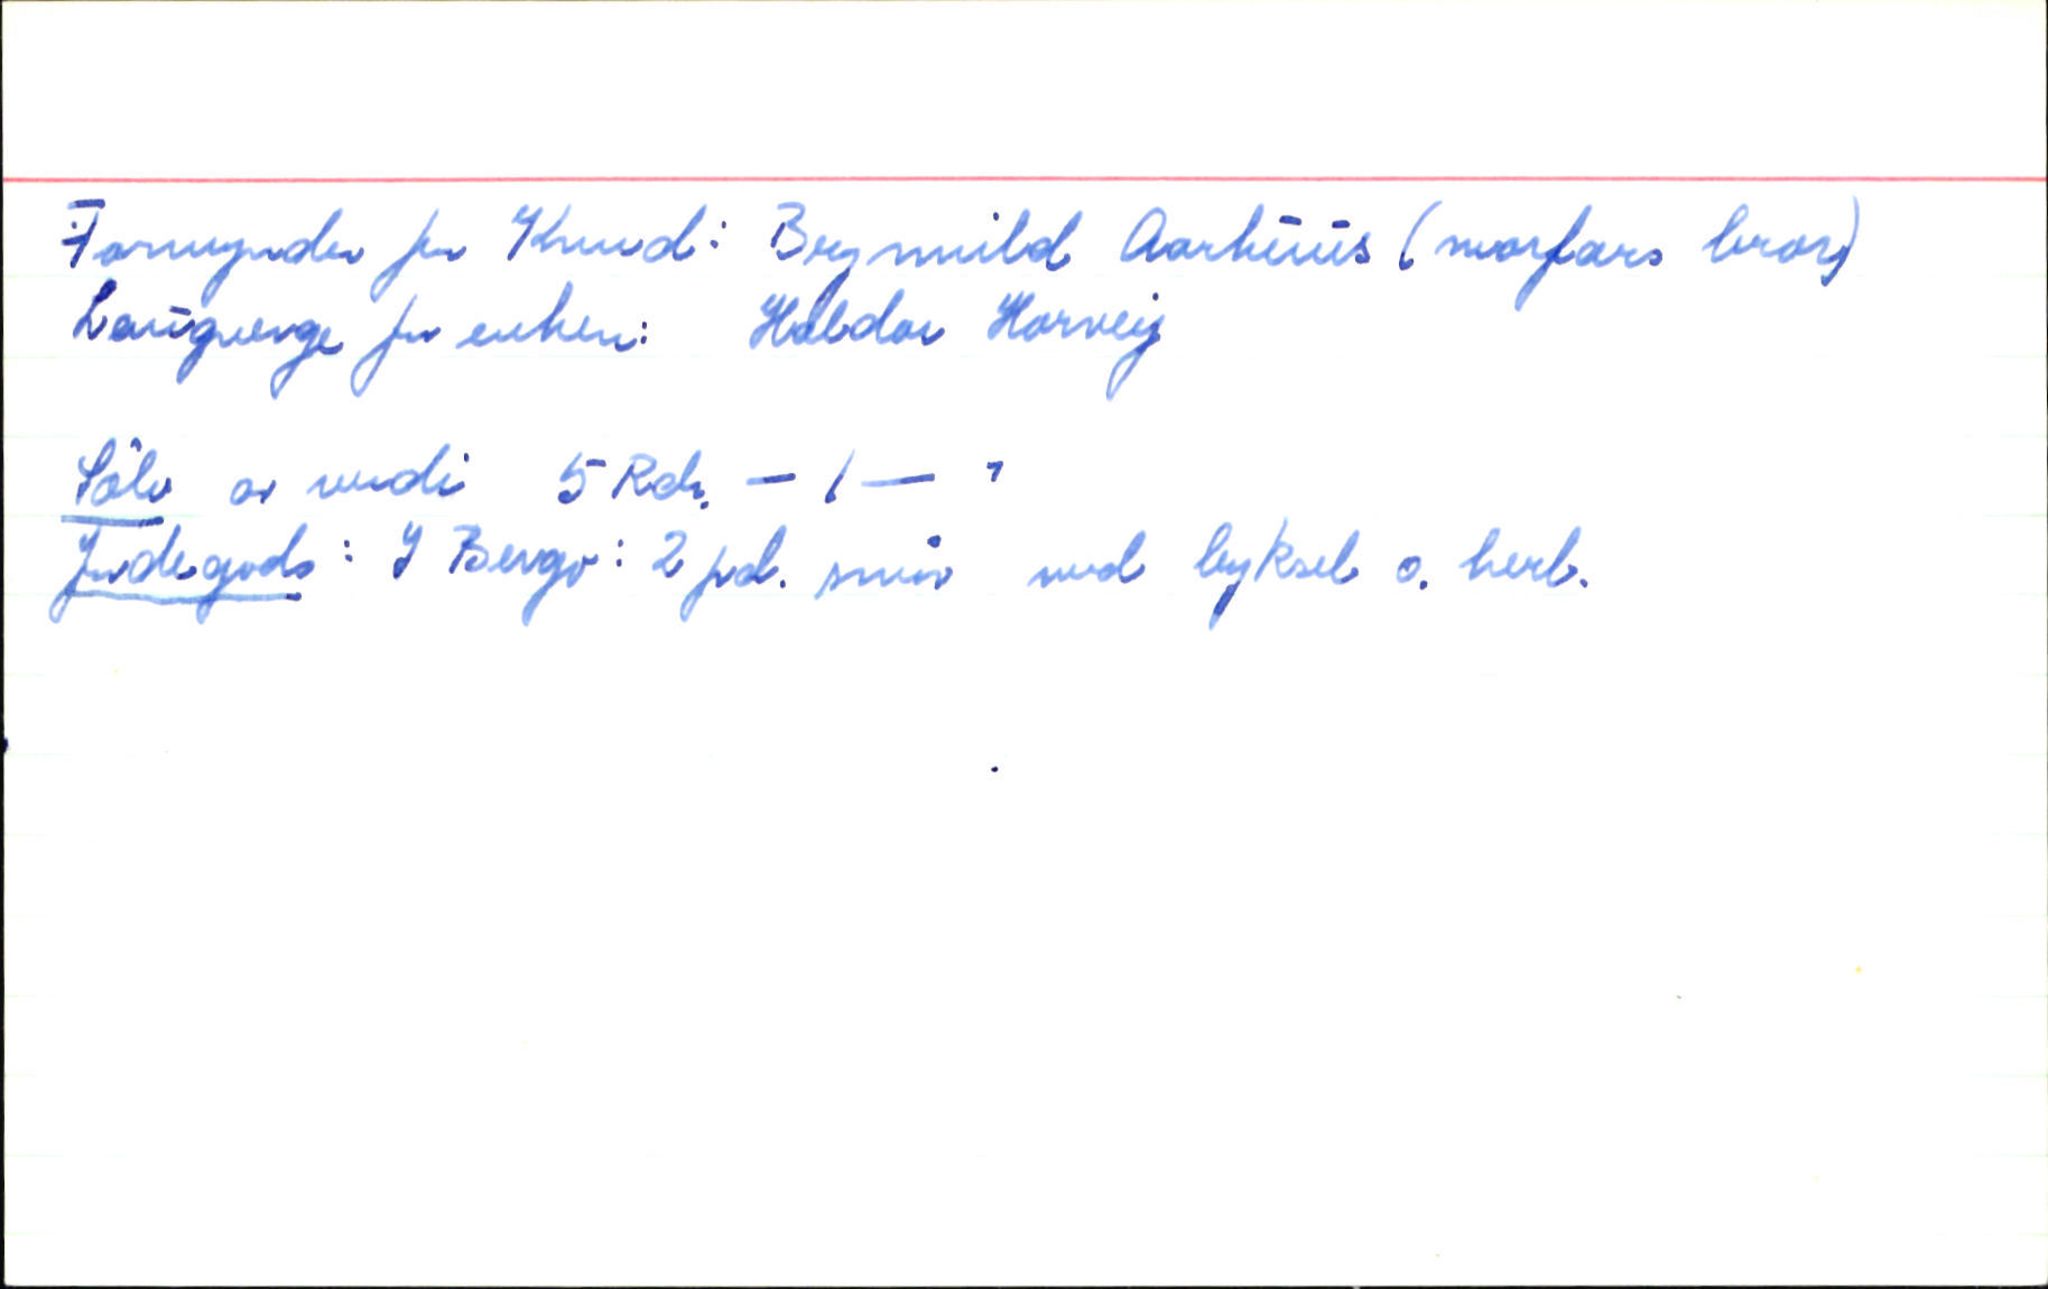 Formynder for Knud: Brynnild Aarhüüs (morfars bror)
Laugverge for enken: Haldor Horveij
Sölv av verdi 5 Rdr. – 1 –
Jordegods: I Berge: 2 pd. smör med byksel o. herl.